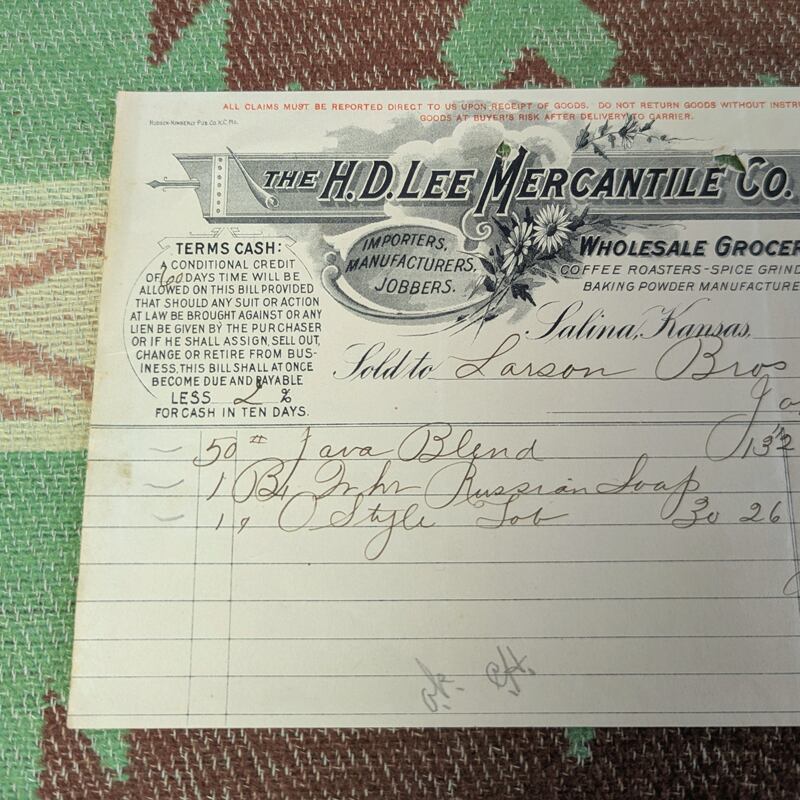 ALL CLAIMS MUST BE REPORTED DIRECT TO US UPON RECEIPT OF GOODS. DO NOT RETURN GOODS WITHOUT INSTRU
GOODS AT BUYER'S RISK AFTER DELIVERY TO CARRIER.
HUDSON-KIMBERLY PUB. CO. K.C. MO.
THE H.D. LEE MERCANTILE CO.
IMPORTERS,
MANUFACTURERS,
JOBBERS.
WHOLESALE GROCER
COFFEE ROASTERS-SPICE GRIND
BAKING POWDER MANUFACTURE
TERMS CASH:
A CONDITIONAL CREDIT
OF 60 DAYS TIME WILL BE
ALLOWED ON THIS BILL PROVIDED
THAT SHOULD ANY SUIT OR ACTION
AT LAW BE BROUGHT AGAINST OR ANY
LIEN BE GIVEN BY THE PURCHASER
OR IF HE SHALL ASSIGN, SELL OUT,
CHANGE OR RETIRE FROM BUS-
INESS, THIS BILL SHALL AT ONCE
BECOME DUE AND PAYABLE
LESS 2 %
FOR CASH IN TEN DAYS.
Salina, Kansas,
Sold to Larson Bros
50 # Java Blend 13 1/2
1 Bx Russian Soap
1 " O Style Job 30 26
o.k. C.H.